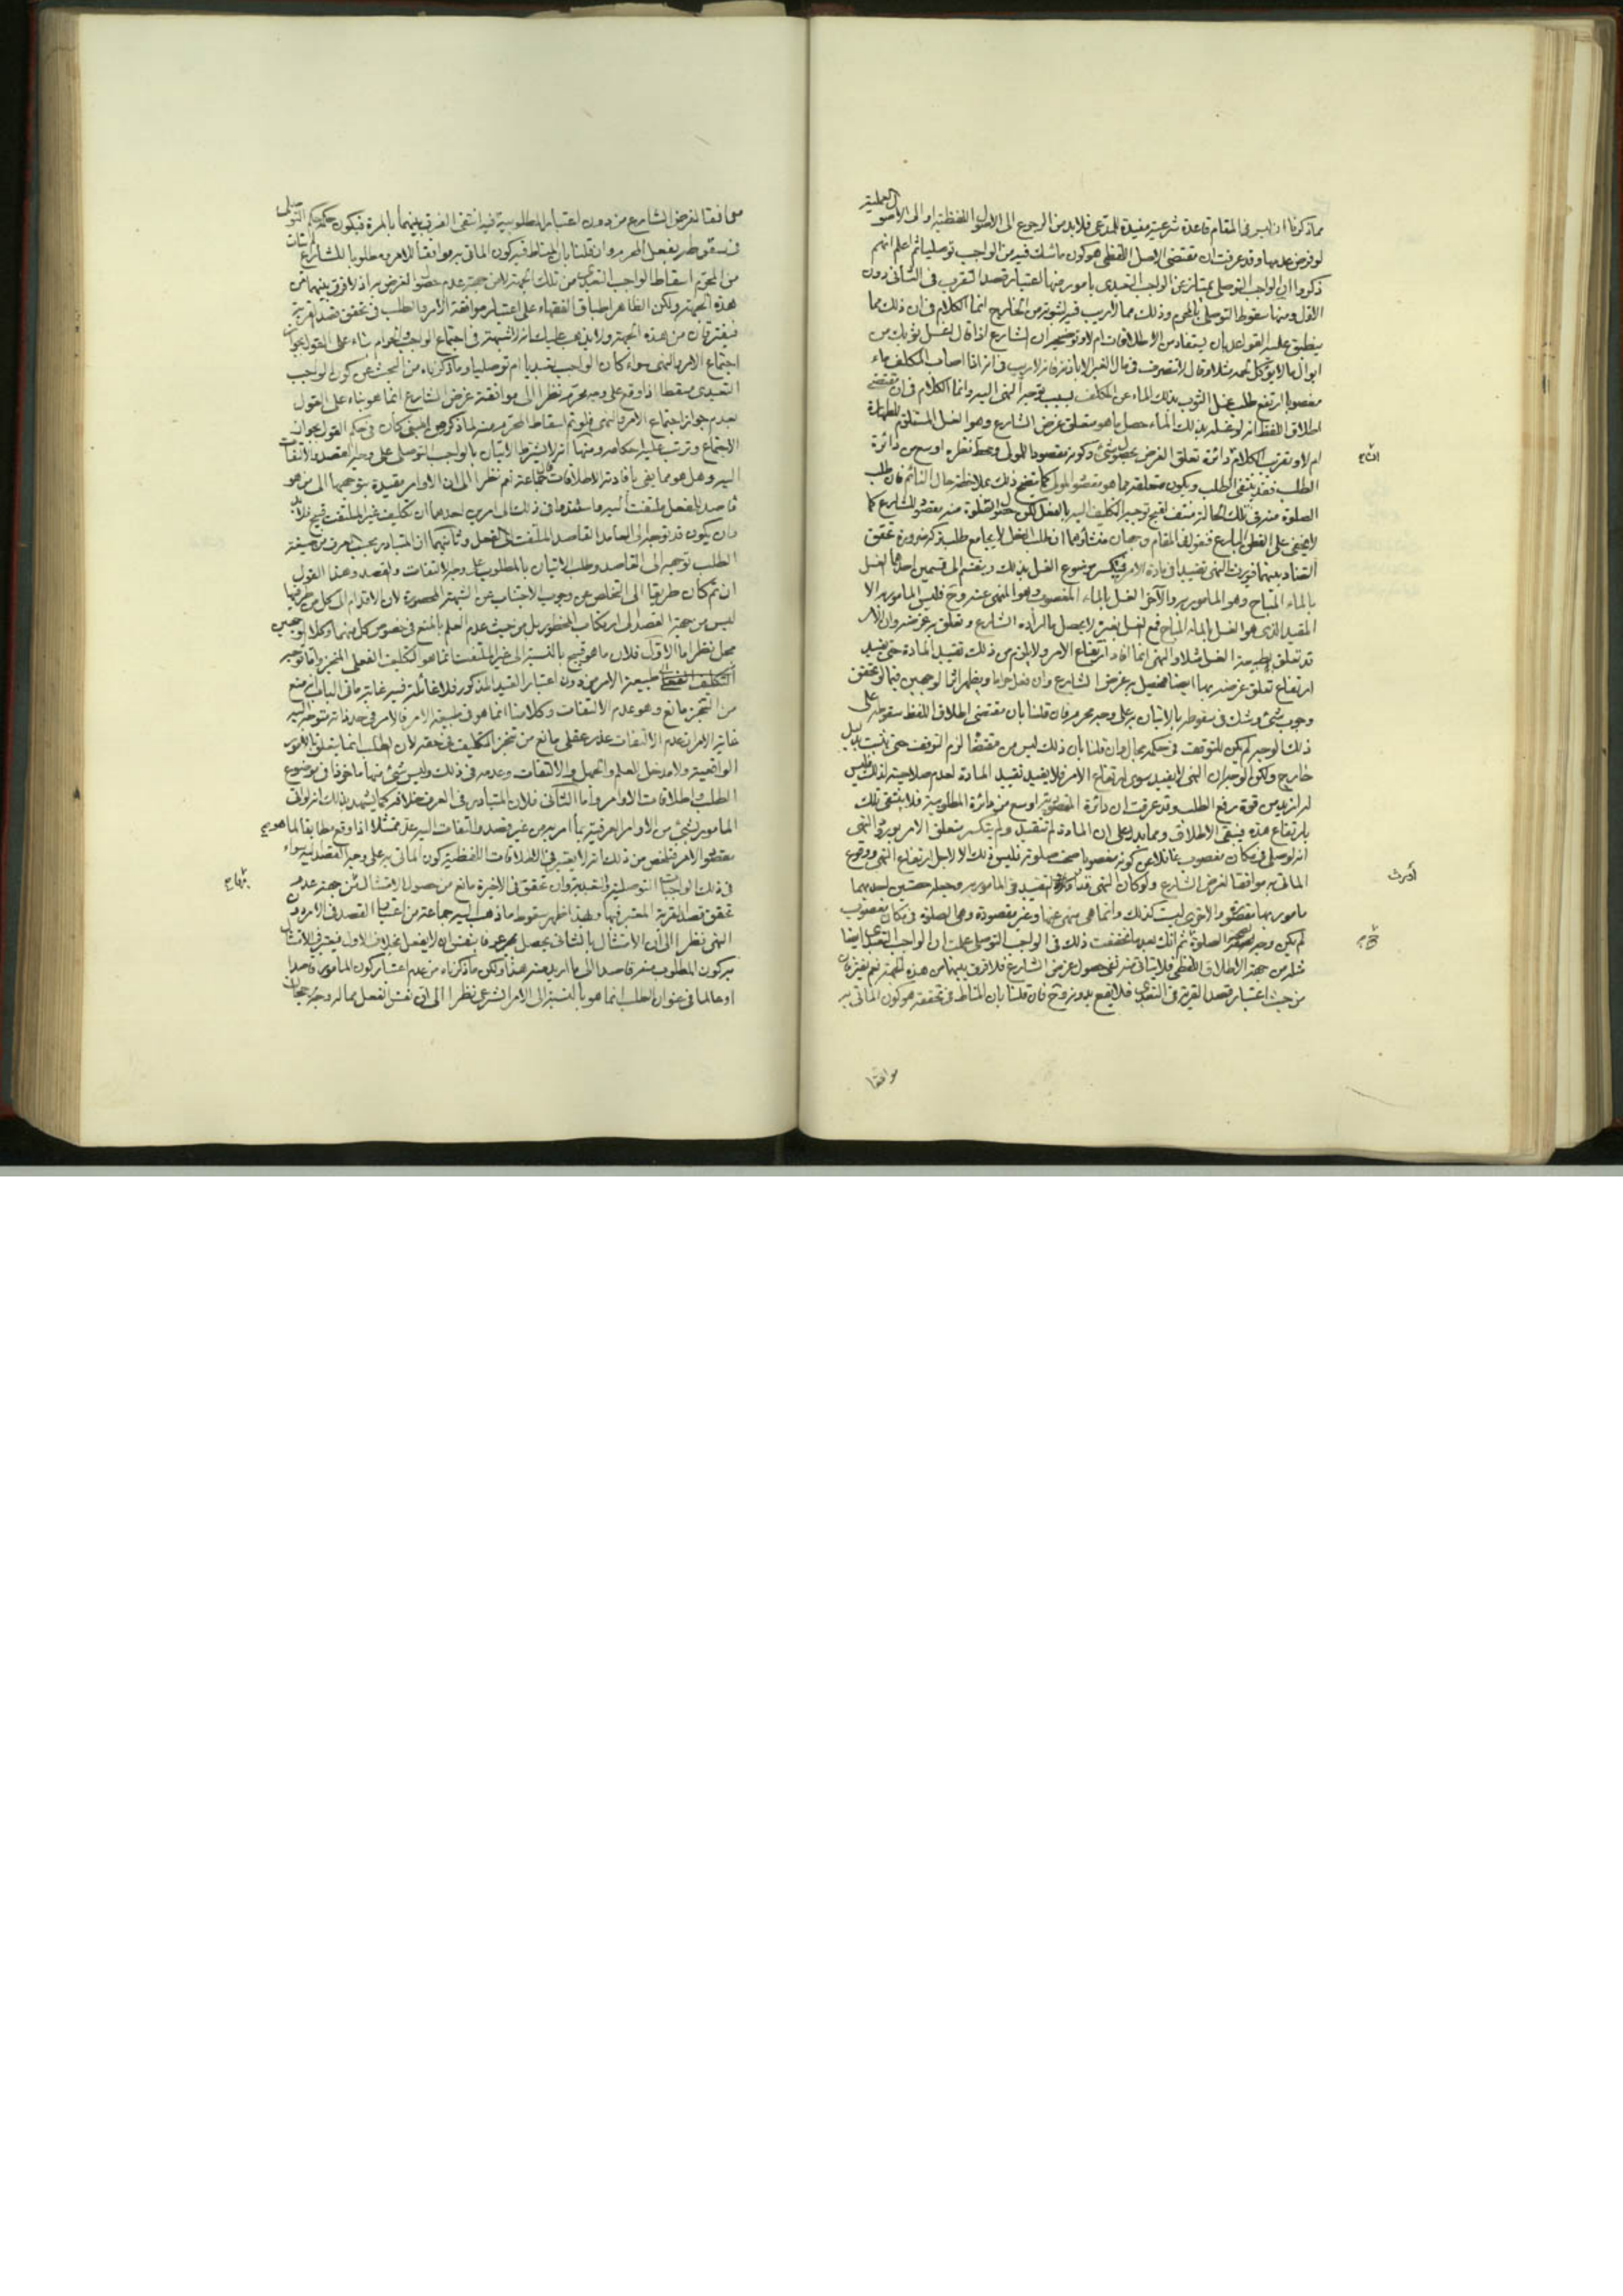 مما ذكرنا ان ليس في المقام قاعدة شرعية مفيدة للمدعى فلا بد من الرجوع الى الاصول اللفظية او الى الاصول العملية
لو فرض عدمها وقد عرفت ان مقتضى الاصل اللفظي هو كون ما شك فيه من الواجب توصليا ثم اعلم انهم
ذكروا ان الواجب التوصلي يمتاز عن الواجب التعبدي بامور منها اعتبار قصد التقرب في الثاني دون
الاول ومنها سقوط التوصلي بالمحرم وذلك مما لا ريب فيه لثبوته من الخارج انما الكلام في ان ذلك مما
ينطبق عليه القواعد بان يستفاد من الاطلاقات ام لا وتوضيحه ان الشارع اذا قال اغسل ثوبك من
ابوال ما لا يؤكل لحمه مثلا وقال لا تتصرف في مال الغير الا باذنه فانه لا ريب في انه اذا اصاب المكلف ماء
مغصوبا ارتفع طلب غسل الثوب بذلك الماء عن المكلف بسبب توجه النهي اليه وانما الكلام في ان مقتضى
اطلاق اللفظ انه لو غسله بذلك الماء حصل ما هو متعلق غرض الشارع وهو الغسل المتعلق للطهارة
ام لا وتقريب الكلام دائرة تعلق الغرض بحصول شيء وكونه مقصودا للمولى ومحط نظره اوسع من دائرة
الطلب فقد ينتفي الطلب ويكون متعلقه مما هو مقصود المولى كما يتضح ذلك بملاحظة حال النائم فان طلب
الصلوة منه في تلك الحالة منتف لقبح توجيه التكليف اليه بالفعل لكن حصول الصلوة منه مقصود للشارع كما
لا يخفى على الفطن البارع فنقول في المقام وجهان منشأوهما ان طلب الفعل لا يجامع طلب تركه ضرورة تحقق
التضاد بينهما فيورث النهي تقييدا في مادة الامر فينكسر موضوع الغسل بذلك وينقسم الى قسمين احدهما الغسل
بالماء المباح وهو المامور به والآخر الغسل بالماء المغصوب وهو المنهى عنه وح فليس المامور به الا
المقيد الذي هو الغسل بالماء المباح فمع الغسل بغيره لا يحصل ما اراده الشارع وتعلق به غرضه وان الامر
قد تعلق بطبيعة الغسل مثلا والنهي انما افاد ارتفاع الامر ولا يلزم من ذلك تقييد المادة حتى يفيد
ارتفاع تعلق غرضه بها ايضا فيحصل به غرض الشارع وان فعل حراما ويظهر اثر الوجهين فيما لو تحقق
وجوب شيء وشك في سقوطه بالاتيان به على وجه محرم فان قلنا بان مقتضى اطلاق اللفظ سقوطه على
ذلك الوجه لم يكن للتوقف في حكمه مجال وان قلنا بان ذلك ليس من مقتضاه لزم التوقف حتى يثبت بدليل
خارج ولكن الوجه ان النهي لا يفيد سوى ارتفاع الامر فلا يفيد تقييد المادة لعدم صلاحيته لذلك فليس
له ازيد من قوة رفع الطلب وقد عرفت ان دائرة المقصودية اوسع من دائرة المطلوبية فلا ينتفي تلك
بارتفاع هذه فيبقى الاطلاق ومما يدل على ان المادة لم تتقيد ولم ينكسر متعلق الامر بورود النهي
انه لو صلى في مكان مغصوب غافلا عن كونه مغصوبا صحت صلوته فليس ذلك الا لاجل ارتفاع النهي ووقوع
الماتى به موافقا لغرض الشارع ولو كان النهي قد اورث التقييد في المامور به وجعله حصتين احديهما
مامور بها مقصودة والاخرى ليست كذلك وانما هي منهى عنها وغير مقصودة وهي الصلوة في مكان مغصوب
لم يكن وجه لصحة الصلوة ثم انك بعد ما تحققت ذلك في الواجب التوصلي علمت ان الواجب التعبدي ايضا
مثله من جهة الاطلاق اللفظي فلا يتاتى منه لنفي حصول غرض الشارع فلا فرق بينهما من هذه الجهة نعم يفترقان
من جهة اعتبار قصد القربة في التعبدي فلا يقع بدونه وح فان قلنا بان المناط في تحققه هو كون الماتى به
موافقا
موافقا لغرض الشارع من دون اعتبار المطلوبية فيه انتفى الفرق بينهما بالمرة فيكون حكمه حكم التوصلي
في سقوطه بفعل المحرم وان قلنا بان المناط فيه كون الماتى به موافقا للامر به مطلوبا للشارع
من المحرم اسقاط الواجب التعبدي من تلك الجهة لا من جهة عدم حصول الغرض به اذ لا فرق بينهما من
هذه الجهة ولكن الظاهر اطباق الفقهاء على اعتبار موافقة الامر والطلب في تحقق قصد القربة
فيفترقان من هذه الجهة ولا يذهب عليك انه لا شبهة في اجتماع الواجب والحرام بناء على القول بجواز
اجتماع الامر والنهي سواء كان الواجب تعبديا ام توصليا وما ذكرناه من البحث عن كون الواجب
التعبدي مسقطا اذا وقع على وجه محرم نظرا الى موافقته غرض الشارع انما هو بناء على القول
بعدم جواز اجتماع الامر والنهي فلو تم اسقاط المحرم منه لما ذكر من المبنى كان في حكم القول بجواز
الاجتماع وترتب عليه احكامه ومنها انه لا يشترط الاتيان بالواجب التوصلي على وجه القصد والالتفات
اليه وهل هو مما يفي بافادته الاطلاقات قال جماعة نعم نظرا الى ان الاوامر مقيدة بتوجهها الى من هو
قاصد للفعل ملتفت اليه ومستندها في ذلك الى امرين احدهما ان تكليف غير الملتفت قبيح فلا بد
وان يكون قد توجه الى العامد القاصد الملتفت الى الفعل وثانيهما ان المتبادر بحسب العرف من صيغة
الطلب توجهه الى القاصد وطلب الاتيان بالمطلوب على وجه الالتفات والقصد وهذا القول
ان تم كان طريقا الى التخلص عن وجوب الاجتناب عن الشبهة المحصورة لان الاقدام الى كل من طرفيها
ليس من جهة القصد الى ارتكاب المحظور بل من حيث عدم العلم بالمنع في خصوص كل منهما وكلا الوجهين
محل نظر اما الاول فلان ما هو قبيح بالنسبة الى غير الملتفت انما هو التكليف الفعلي المنجز واما توجيه
التكليف طبيعة الامر من دون اعتبار القيد المذكور فلا غائلة فيه غاية ما في الباب انه منع
من التنجز مانع وهو عدم الالتفات وكلامنا انما هو في طبيعة الامر فالامر في حد ذاته متوجه اليه
غاية الامر ان عدم الالتفات عذر عقلي مانع من تنجز التكليف في حقه لان الطلب انما يتعلق بالامور
الواقعية ولا مدخل للعلم والجهل والالتفات وعدمه في ذلك وليس شيء منها ماخوذا في موضوع
الطلب واطلاقات الاوامر واما الثاني فلان المتبادر في العرف خلافه كما يشهد بذلك انه لو اتى
المامور بشيء من الاوامر العرفية بما امر به من غير قصد والتفات اليه عد ممتثلا اذا وقع مطابقا لما هو
مقصود الامر فتلخص من ذلك انه لا يعتبر في الاطلاقات اللفظية كون الماتى به على وجه القصد اليه سواء
في ذلك الواجبات التوصلية والتعبدية وان تحقق في الاخيرة مانع من حصول الامتثال من جهة عدم
تحقق قصد القربة المعتبر فيها وبهذا ظهر سقوط ما ذهب اليه جماعة من اعتبار القصد في الامر دون
النهي نظرا الى ان الامتثال بالثاني يحصل بمجرد ما يفتران لا يفعل بخلاف الاول فيعتبر في الامتثال
به كون المطلوب منه قاصدا الى ما اريد منه هذا ولكن ما ذكرناه من عدم اعتبار كون المامور قاصدا
او عالما في عنوان الطلب انما هو بالنسبة الى الامر الشرعي نظرا الى ان نفس الفعل مما له وجه رجحان